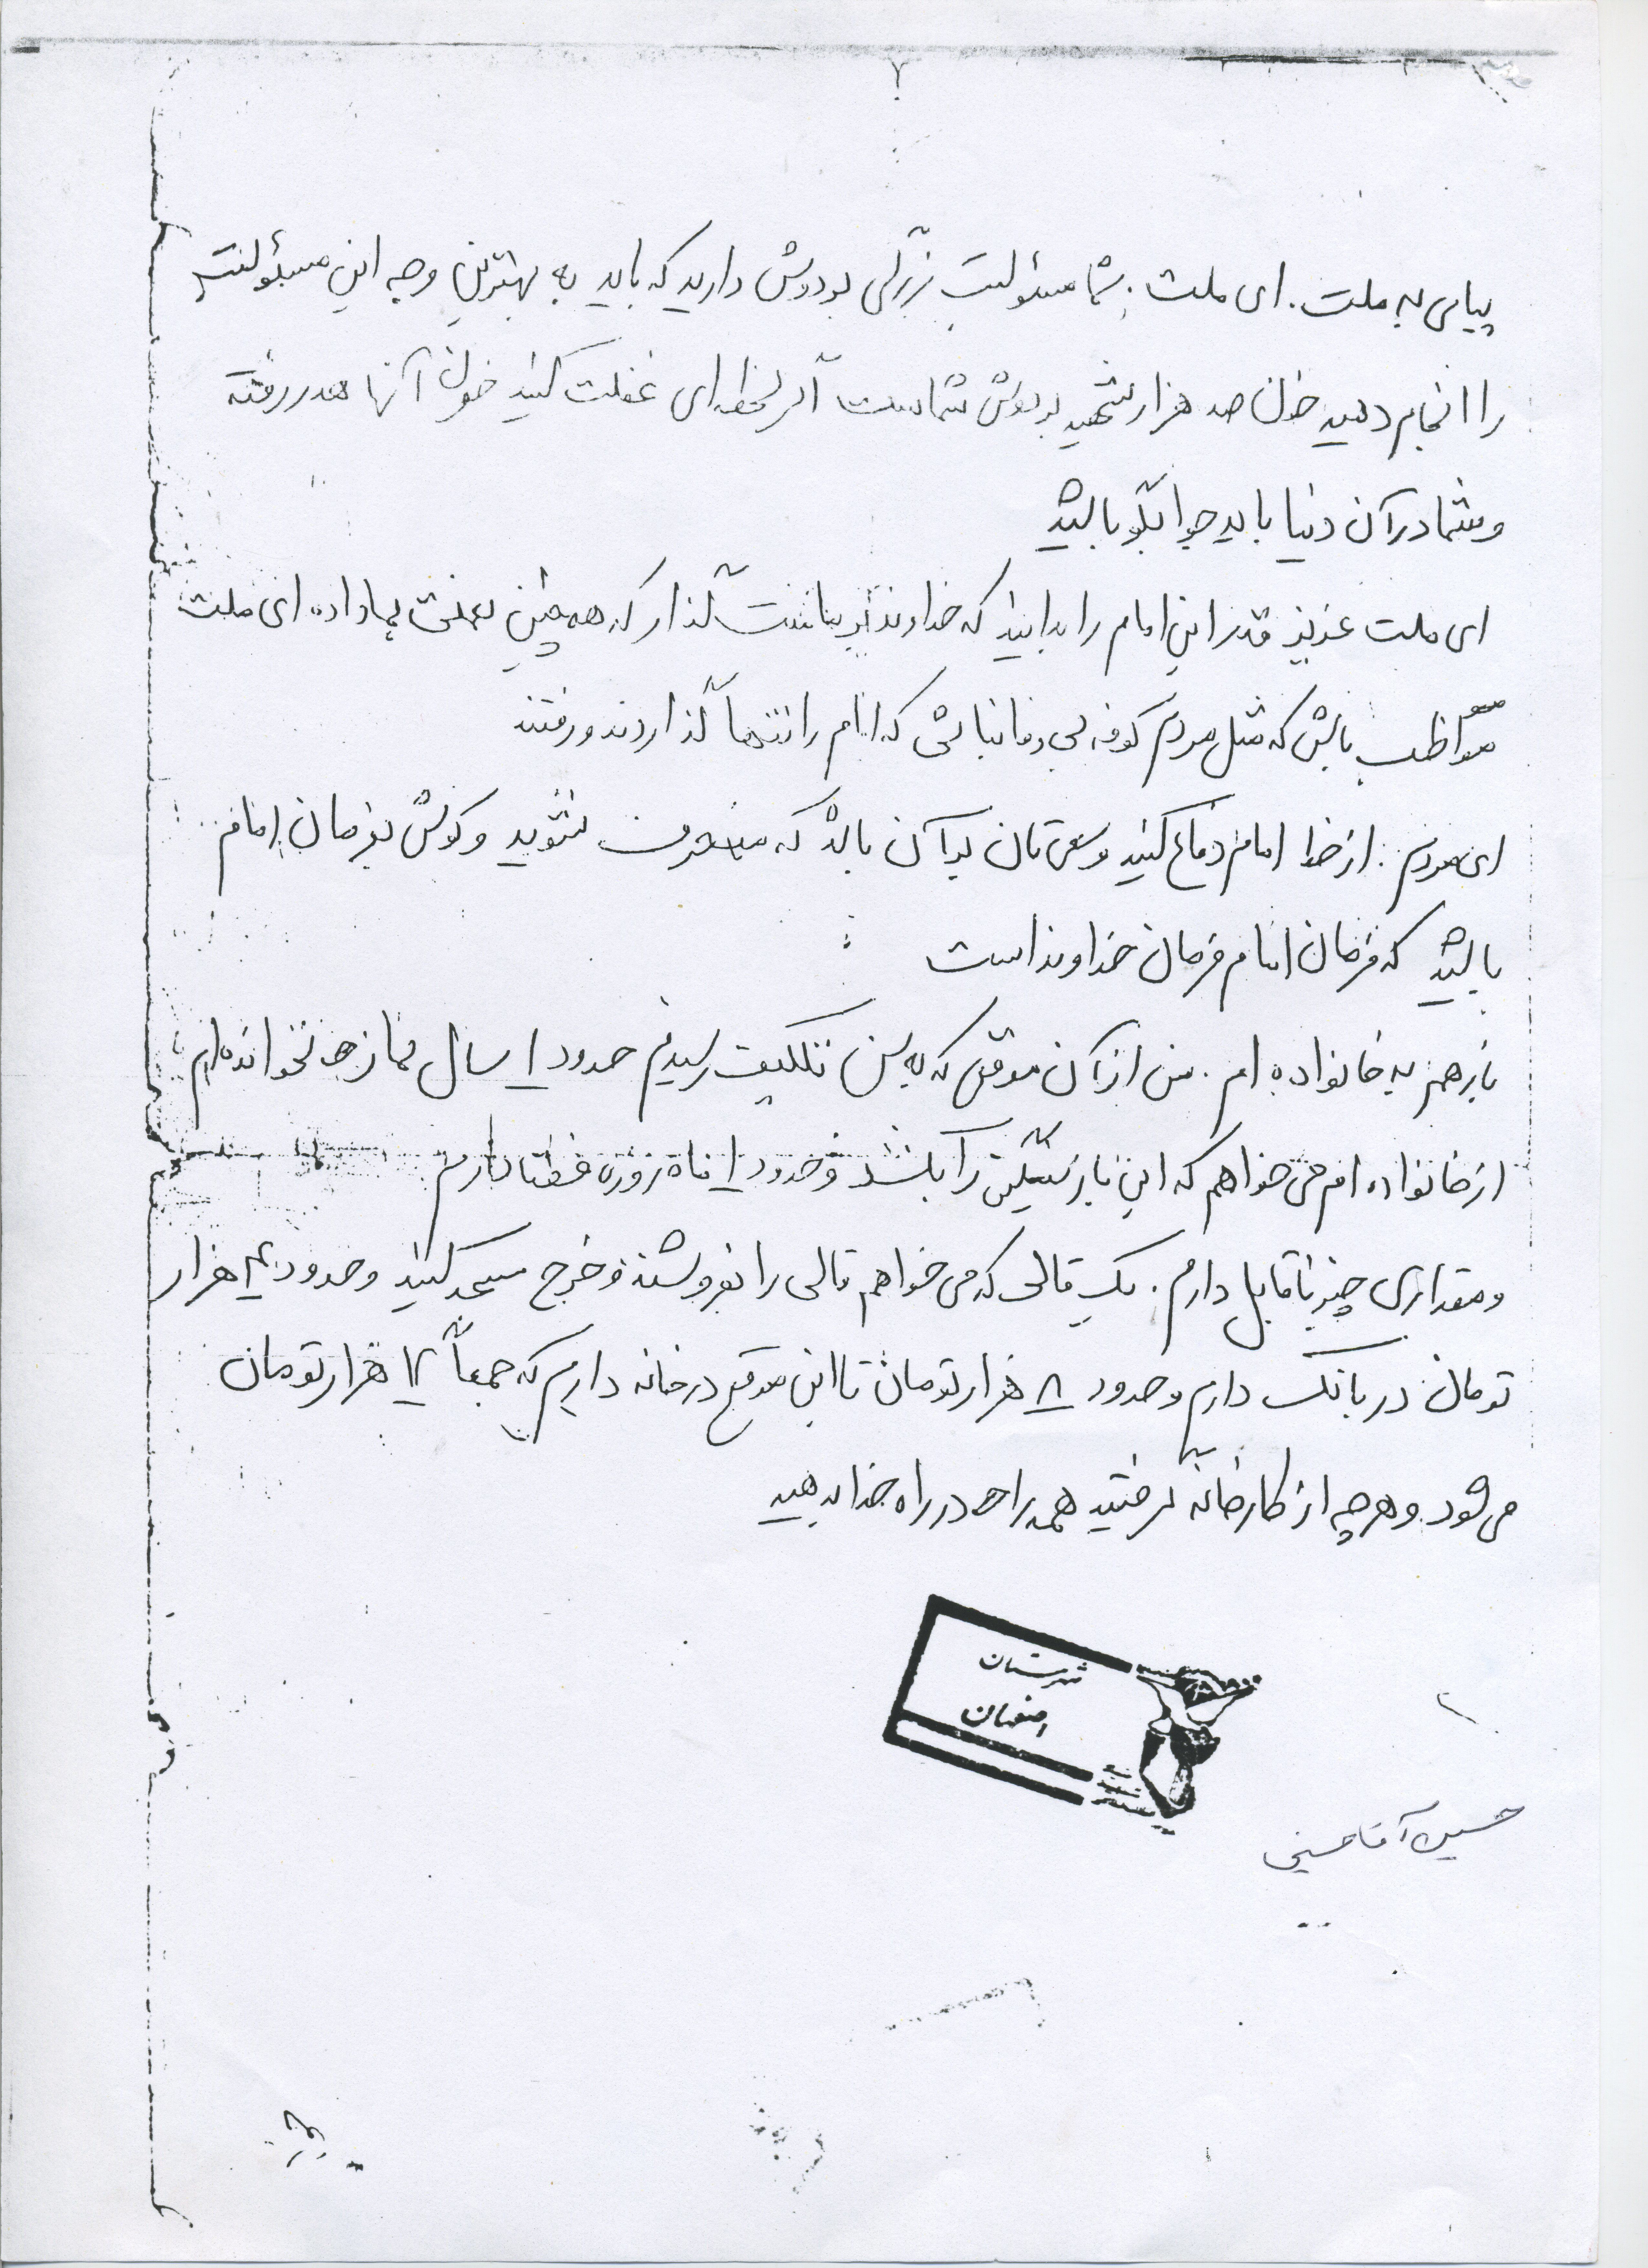 پیامی به ملت. ای ملت. شما مسئولیت بزرگی بر دوش دارید که باید به بهترین وجه این مسئولیت
را انجام دهید خون صد هزار شهید بر دوش شماست اگر لحظه‌ای غفلت کنید خون آنها هدر رفته
و شما در آن دنیا باید جوابگو باشید
ای ملت عزیز قدر این امام را بدانید که خداوند بر ما منت گذارد که همچنین نعمتی بما داده ای ملت
مواظب باش که مثل مردم کوفه بی وفا نباشی که امام را تنها گذاردند و رفتند
ای مردم. از خط امام دفاع کنید و سعی تان بر آن باشد که منحرف نشوید و گوش بفرمان امام
باشید که فرمان امام فرمان خداوند است
باز هم به خانواده ام. من از آن موقعی که به سن تکلیف رسیدم حدود ۱ سال نماز نخوانده‌ام
از خانواده ام می خواهم که این بار سنگین را بکشد و حدود ۱ ماه روزه قضا دارم
و مقداری چیز ناقابل دارم. یک قالی که می خواهم قالی را بفروشند و خرج مسجد کنید و حدود ۴ هزار
تومان در بانک دارم و حدود ۸ هزار تومان تا این موقع در خانه داریم که جمعاً ۱۲ هزار تومان
می شود و هر چه از کارخانه گرفتید همه را در راه خدا بدهید
شهرستان
اصفهان
حسین آقاحسینی